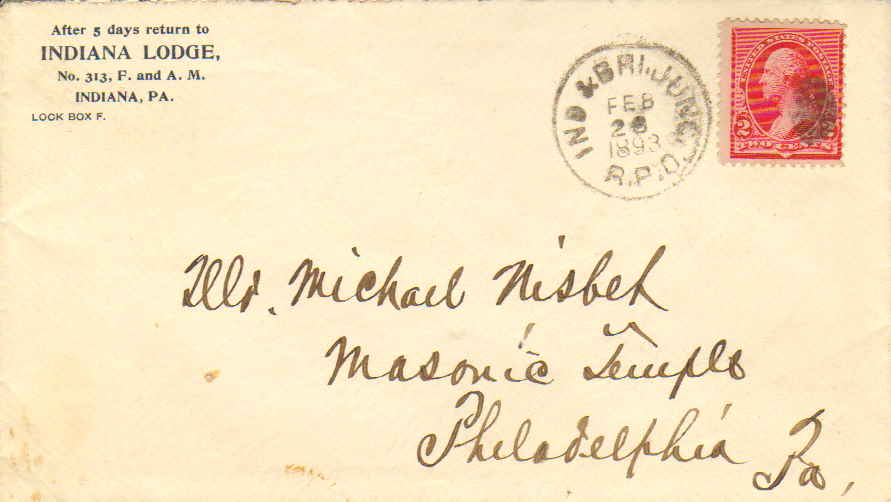 After 5 days return to
INDIANA LODGE,
No. 313, F. and A. M.
INDIANA, PA.
LOCK BOX F.
IND & BRI.JUNC.
FEB
28
1893
R.P.O.
UNITED STATES POSTAGE
2
TWO CENTS
Michael Nisbet
Masonic Temple
Philadelphia Pa,